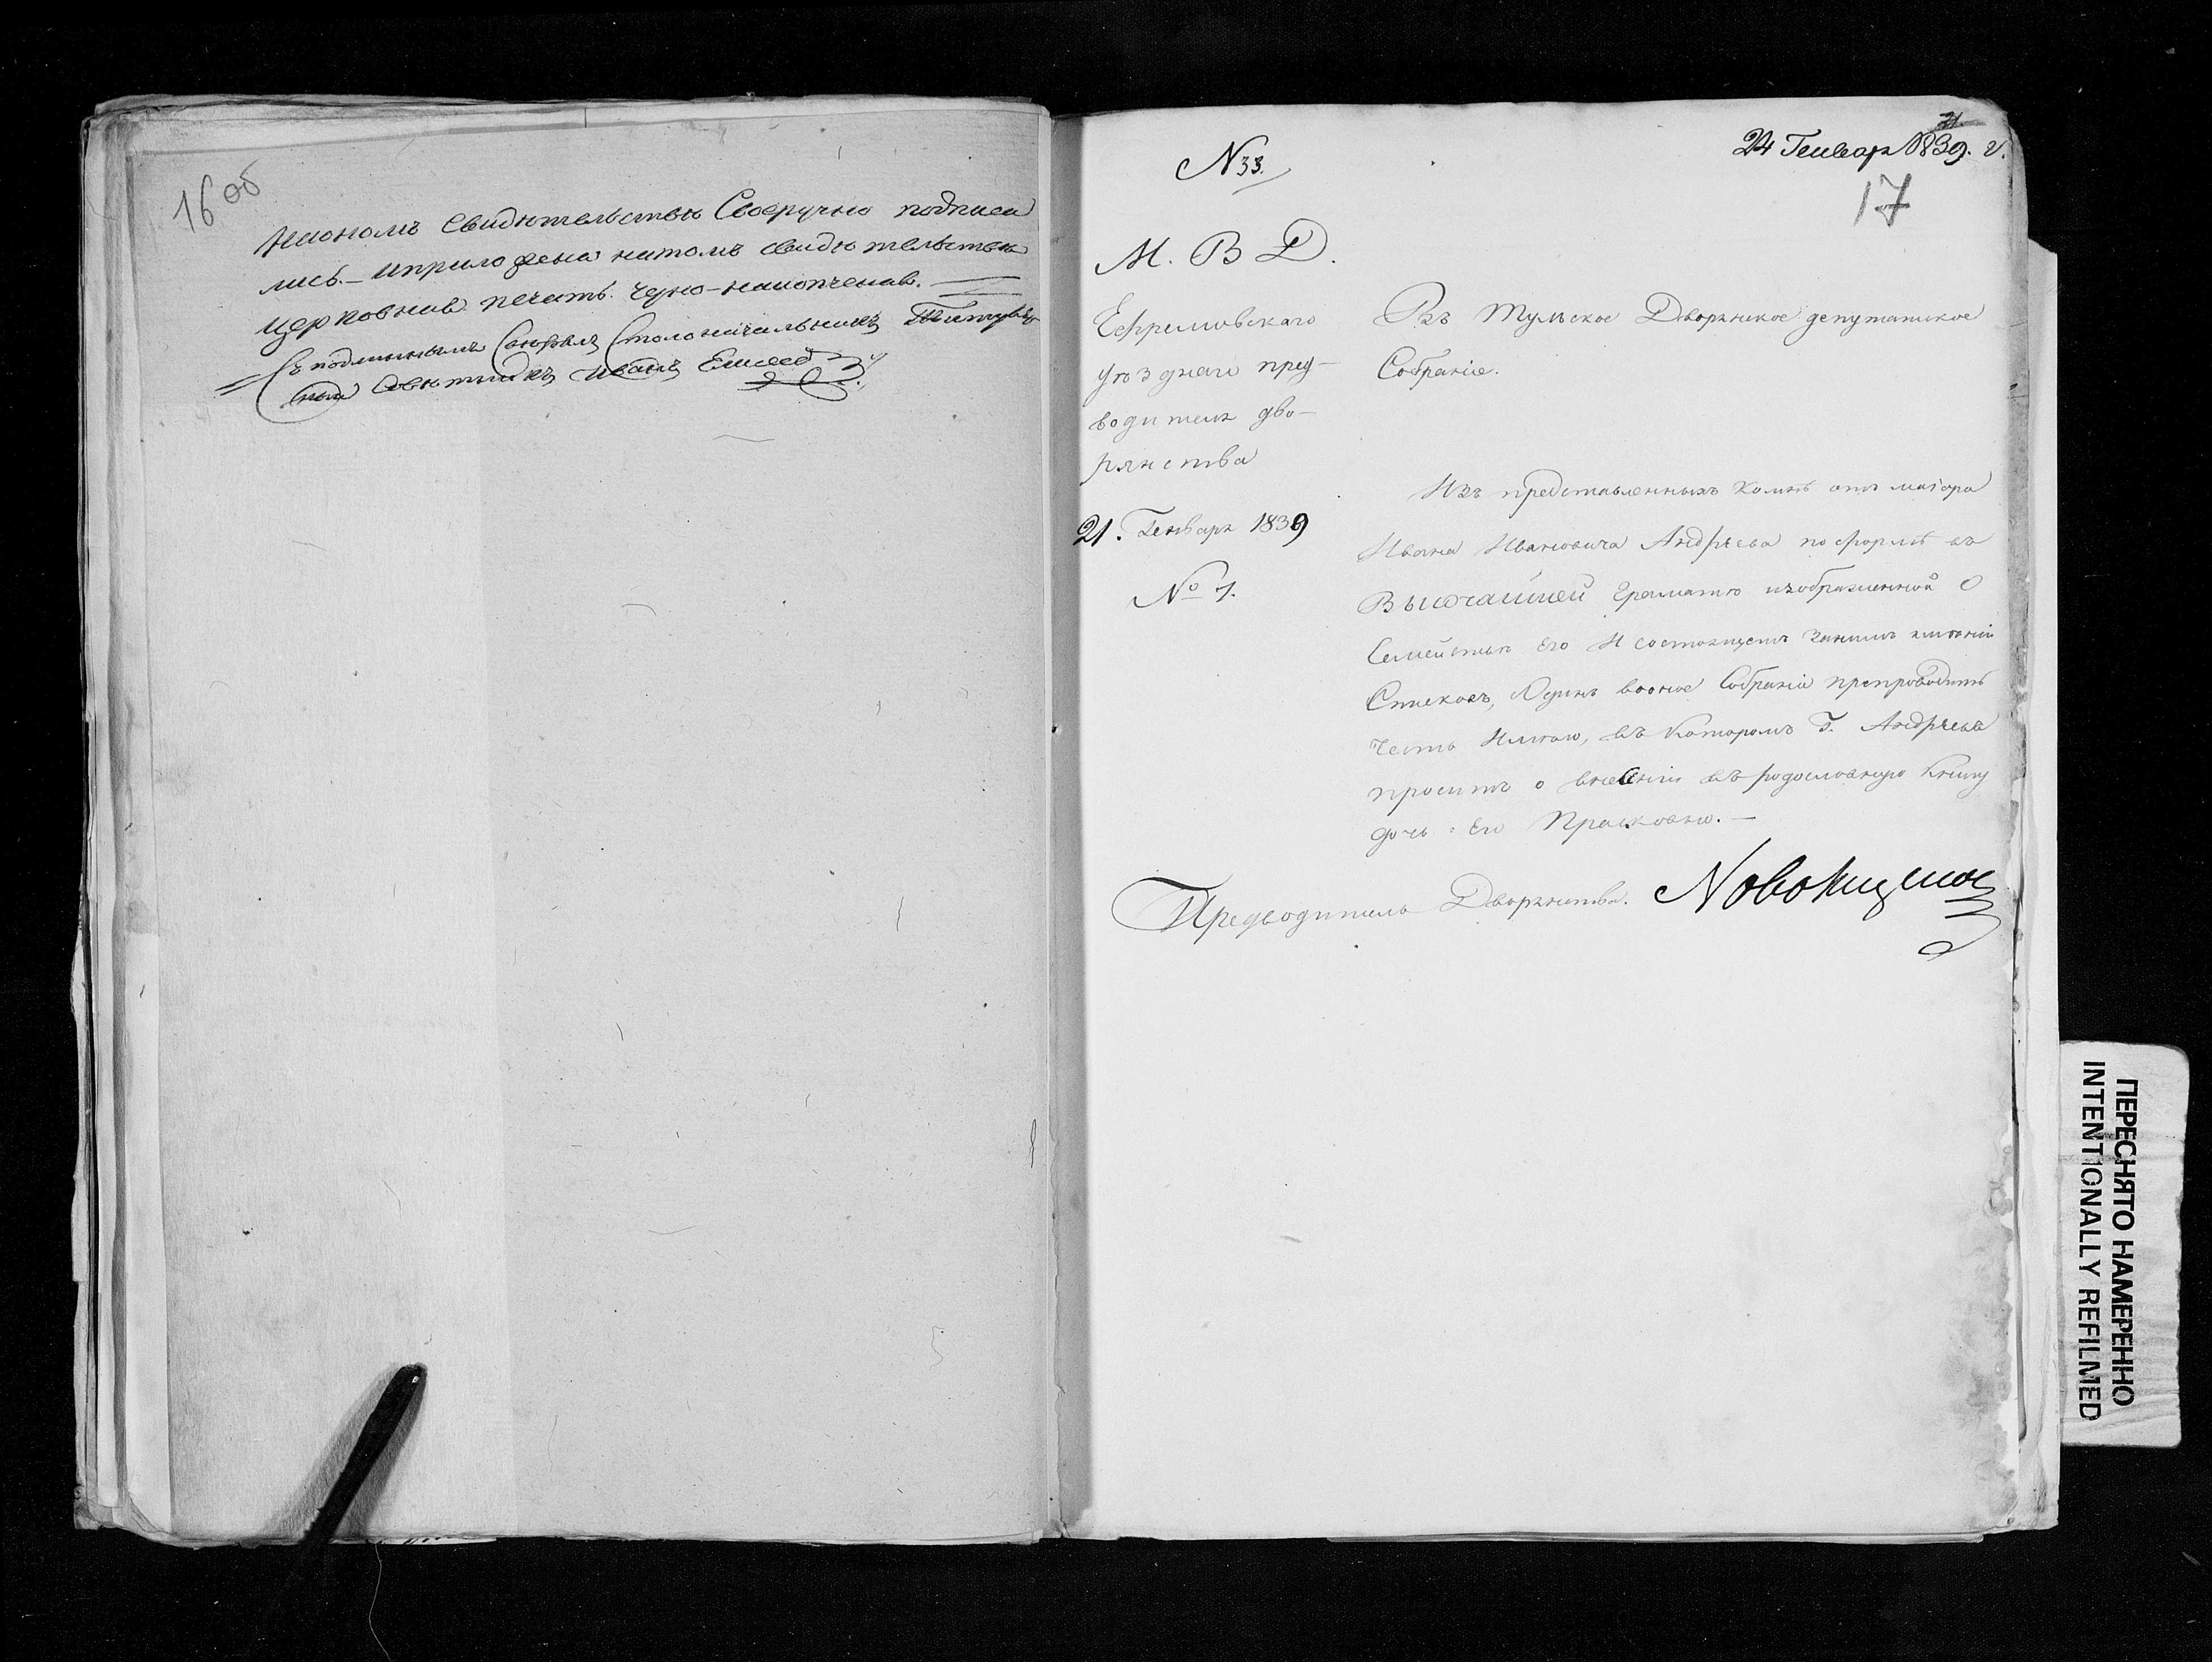 16 об
на ономъ свидѣтельствѣ Своеручно подписа
лись.- и приложена на томъ свидѣтельствѣ
церковная печать черно-накопченая.
Съ подлиннымъ Столоначальникъ Титуляр
ный Совѣтникъ Иванъ
N 33.
24 Генваря 1839. г.
17
М. В. Д.
Ефремовскаго
уѣзднаго пред-
водителя дво-
рянства
21. Генваря 1839
№ 7.
Въ Тульское Дворянское депутатское
Собраніе.
Изъ представленныхъ комнѣ отъ маіора
Ивана Ивановича Андреева по формѣ въ
Высочайшей Граматѣ изображенной о
Семействѣ Его И состоящемъ заннимъ имѣніи
Списковъ, Одинъ въоное Собраніе препроводить
Честь Имѣю, въ Которомъ Г. Андреевъ
проситъ о внесеніи въ родословную Книгу
дочь Его Прасковью. —
Предводитель Дворянства.
ПЕРЕСНЯТО НАМЕРЕННО
INTENTIONALLY REFILMED